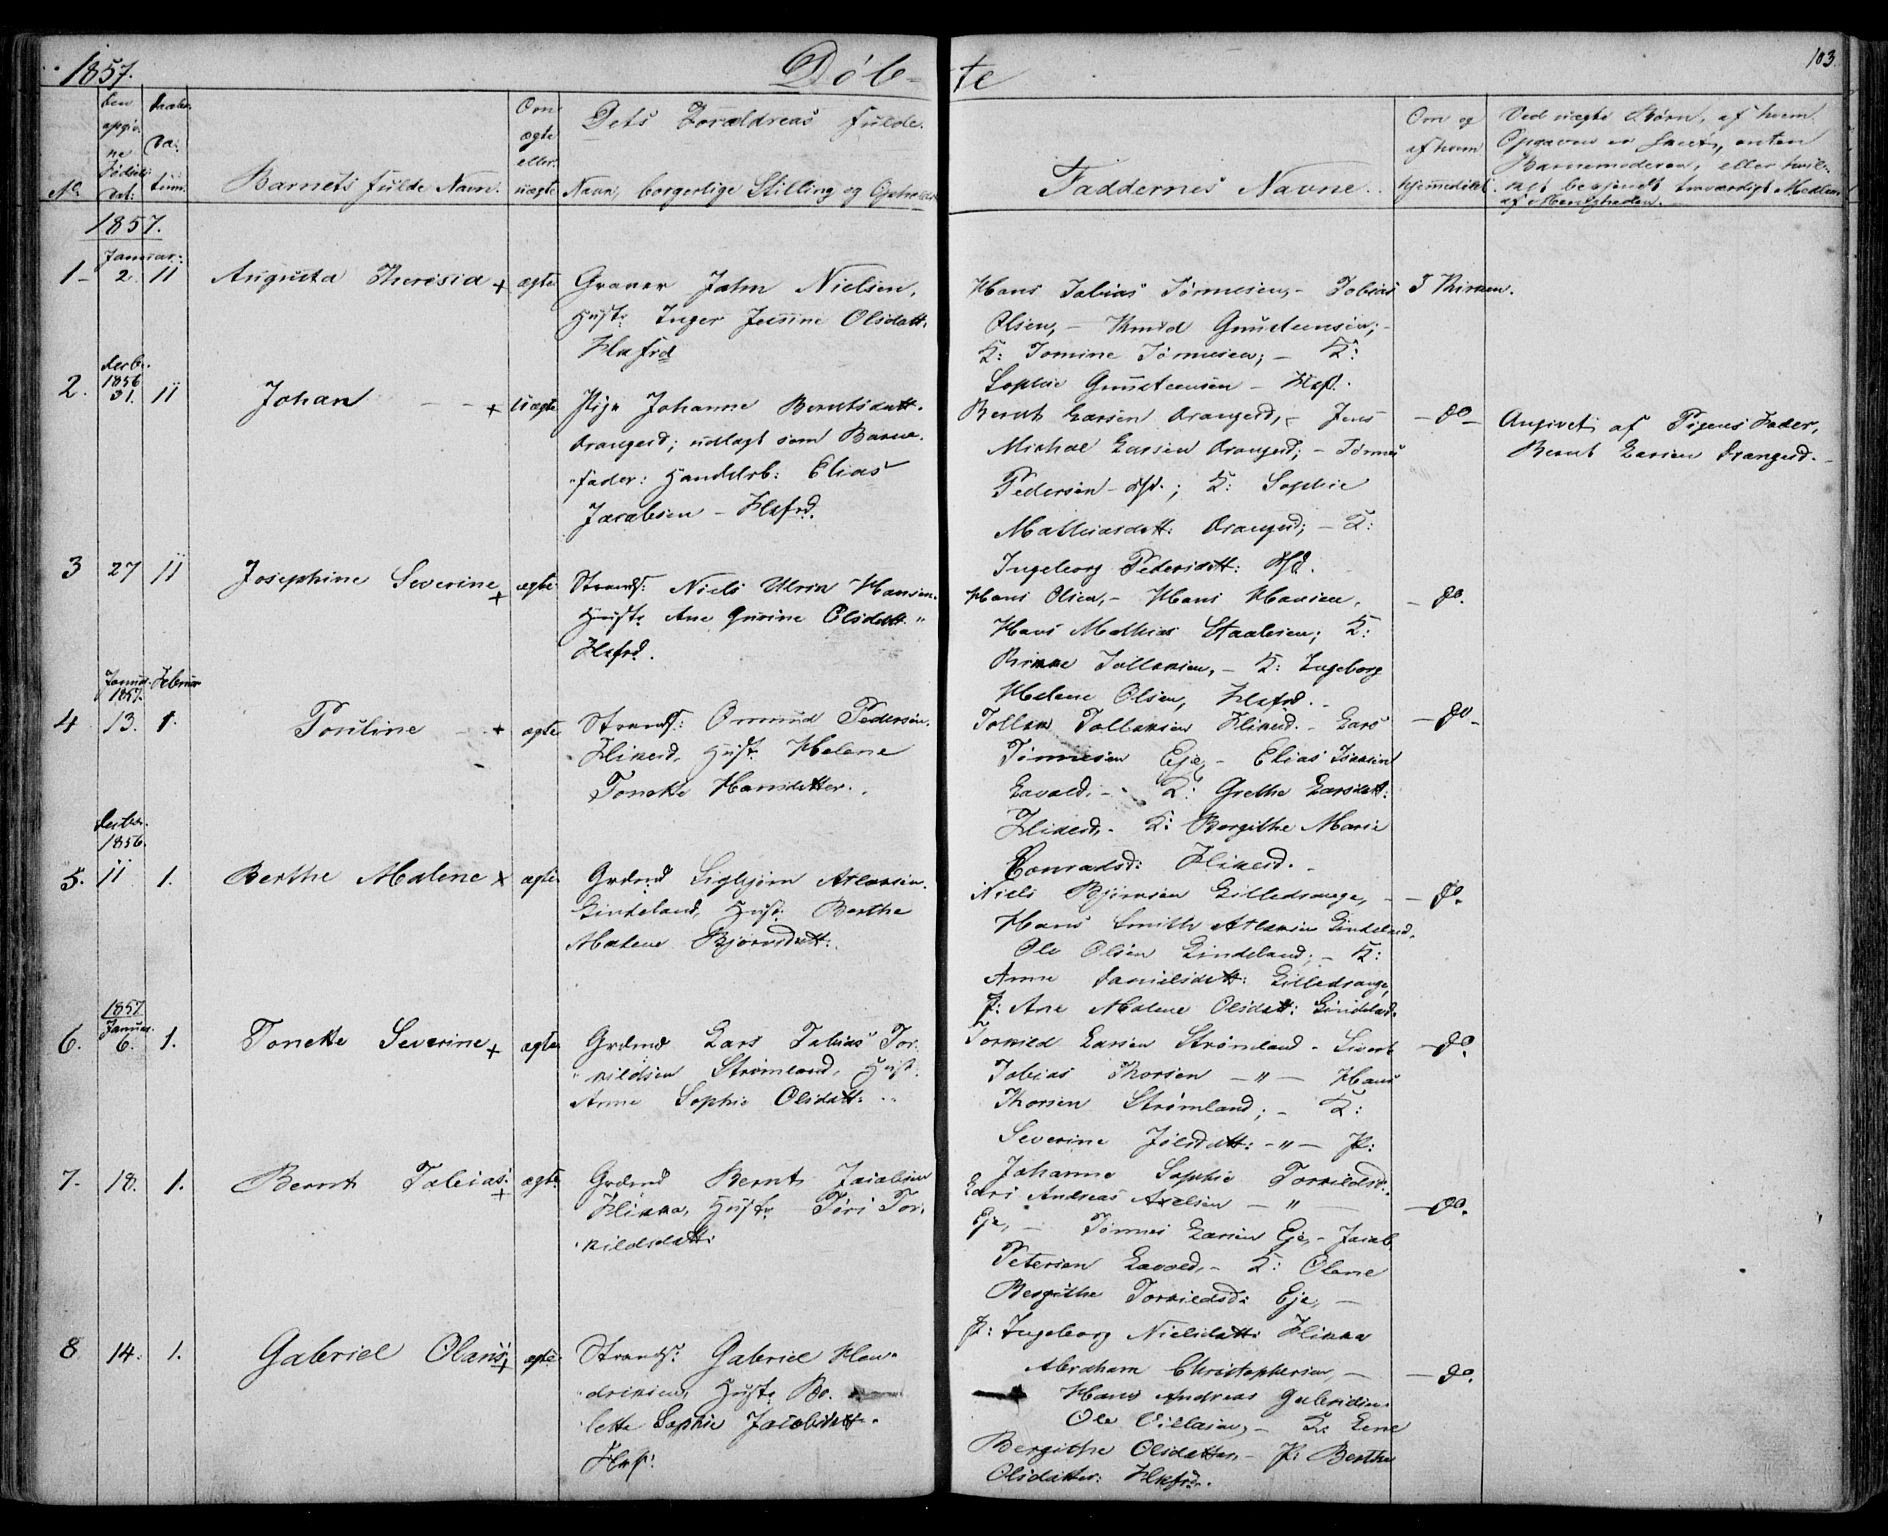 1857.
Døb-te
103.
No.
Den opgivne Fødselsdat:
Daabs Datum.
Barnets fulde Navn.
Om ægte eller uægte
Dets Forældres fulde
Navn, borgerlige Stilling og
Faddernes Navne.
Om og af hvem hjemmedøbt
Ved uægte Børn, af hvem
Opgaven er skeet, enten
Barnemoderen, eller
bekjendt troværdigt Medlem
af Menigheden.
1857.
Januar.
1- 2. 11 Augusta Theresia + ægte
Graver Jahn Nielsen,
Hustr. Inger Jensine Olsdatt.
Flkfrd
Hans Tobias Tørnesen, - Tobias
Olsen, - Knud Gundersen; -
K: Tomine Tørnesen; - K:
Sophie Gundersen - Flkf.
I Kirken.
Decbr.
1856
2. 31. 11 Johan - - + uægte
Pige Johanne Berntsdatt.
Drangeid; udlagt som Barne-
fader: Handelsb: Elias
Jacobsen - Flkfrd.
Bernt Larsen Drangeid, - Jens
Michal Larsen Drangeid; - Tørnes
Pedersen - ; K: Sophie
Mathiasdatt: Drangeid; - K:
Ingeborg Pedersdatt:
- do -
Angivet af Pigens Fader,
Bernt Larsen Drangeid. -
3 27 11 Josephine Severine + ægte
Strands: Niels Ulrik Hansen.
Hustr. Ane Gurine Olsdatt. "
Flkfrd.
Hans Olsen, - Hans Hansen,
Hans Mathias Staalesen; K:
Rikke Tollaksen, - K: Ingeborg
Helene Olsen, Flkfrd.
- do.
Januar 1857. Februar
4 13. 1. Pouline - + ægte
Strands: Omund Pedersen
Flikeid, Hustr. Helene
Tonette Hansdatter.
Tollak Tollaksen Flikeid. - Lars
Tørnesen Eje, - Elias Isaksen
Lavold. - K: Grethe Larsdatt:
Flikeid, - K: Borgithe Marie
Conradsd: Flikeid.
- do -
Decbr.
1856.
5. 11 1. Berthe Malene x ægte
Grdmd Sigbjørn Atlaksen
Lindeland, Hust: Berthe
Malene Bjørnsdatt:
Niels Bjørnsen Lilledrange, -
Hans Smith Atlaksen Lindeland,
Ole Olsen Lindeland; - K:
Anne Danielsdatt: Lilledrange,
P: Ane Malene Olsdatt: Lindeland.
- do.
1857
Januar.
6. 6. 1. Tonette Severine + ægte
Grdmd Lars Tobias Tor-
kildsen Strømland, Hust.
Anne Sophie Olsdatt:
Torkild Larsen Strømland - Sivert
Tobias Thorsen - " - Hans
Thorsen Strømland; - K:
Severine Joelsdatt: - " - P:
Johanne Sophie Torkildsd:
- do.
7. 18. 1. Bernt Tobias. + ægte
Grdmd Bernt Jacobsen
Flikka, Hustr. Tøri Tor-
kildsdatt:
Lars Andreas Axelsen - " -
Eje, - Tønnes Larsen Eje, - Jacob
Petersen Lavold, - K: Olene
Bergithe Torkildsd: Eje, -
P: Ingeborg Nielsdatt: Flikka
- do.
8 14. 1. Gabriel Olaus + ægte
Strands: Gabriel Hen-
driksen, Hustr. Bo-
lette Sophie Jacobsdatt.
Flkf:
Abraham Christophersen, -
Hans Andreas Gabrielsen
Ole Villasen, - K: Lene
Bergithe Olsdatter, - P: Berthe
Olsdatter: Flkfrd.
- do.